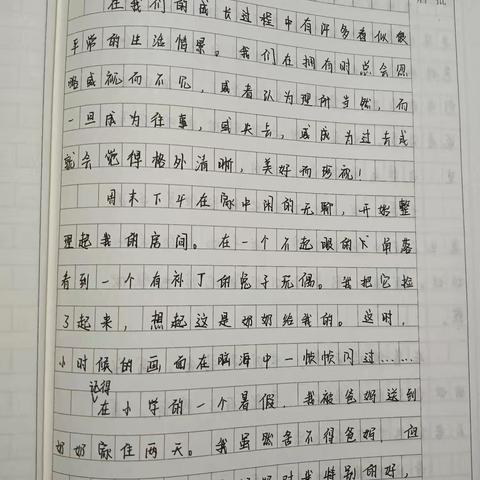 在我们的成长过程中有许多看似很
平常的生活情景。我们在拥有时总会忽
略或视而不见，或者认为理所当然，而
一旦成为往事，或失去，或成为过去式
就会觉得格外清晰，美好而珍视！
周末下午在家中闲的无聊，开始整
理起我的房间。在一个不起眼的小角落
看到一个有补丁的兔子玩偶。我把它捡
了起来，想起这是奶奶给我的。这时，
小时候的画面在脑海中一帧帧闪过……
记得
在小学的一个暑假，我被爸妈送到
奶奶家住两天。我虽然舍不得爸妈，应
对我特别的好，